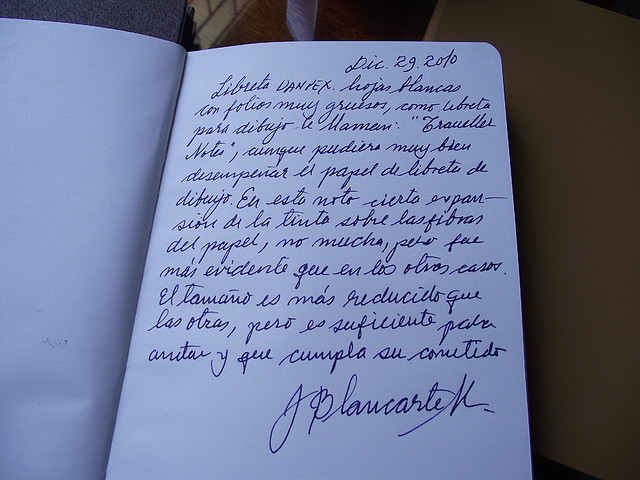 Dic. 29. 2010
Libreta DANPEX. hojas blancas
con folios muy gruesos, como libreta
para dibujo le llaman: "Traveller
Notes", aunque pudiera muy bien
desempeñar el papel de libreta de
dibujo. En esta noto cierta expan-
sión de la tinta sobre las fibras
del papel, no mucha, pero fue
más evidente que en los otros casos.
El tamaño es más reducido que
las otras, pero es suficiente para
anotar y que cumpla su cometido
J Blancarte